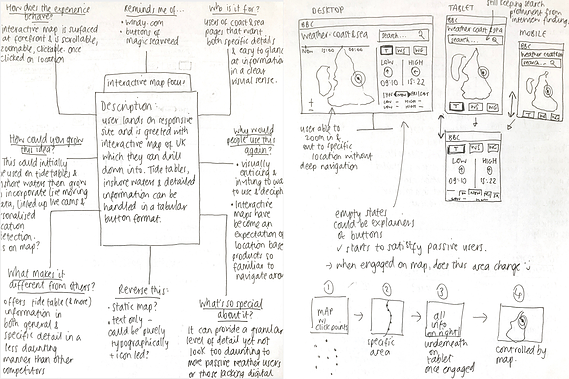 How does the experience
behave?
interactive map is surfaced
at forefront & is scrollable,
zoomable, clickable once
clicked on location
Reminds me of...
• windy.com
• buttons of
magic seaweed
Who is it for?
users of coast & sea
pages that want
both specific details
& easy to glance
at information
in a clear
visual sense.
interactive map focus
Description:
user lands on responsive
site and is greeted with
interactive map of UK
which they can drill
down into. Tide tables,
inshore waters & detailed
information can be
handled in a tabular
button format.
How could you grow
this idea?
This could initially
be used on tide tables &
inshore waters then grow
incorporate live moving
linked up live cams &
on map?
Why would
people use this
again?
• visually
enticing &
inviting to want
to use & decipher
• Interactive
maps have
become an
expectation of
location base
products so
familiar to
navigate around
What makes it
different from others?
• offers tide table (& more)
information in
both general &
specific detail in a
less daunting
manner than other
competitors
Reverse this:
• static map?
• text only -
could be purely
typographically
+ icon led?
What's so special
about it?
It can provide a granular
level of detail yet not
look too daunting to
more passive weather users
or those lacking digital
DESKTOP
BBC
Weather - coast & sea
search...
Now
T
WS
LOW
HIGH
09:10
15:22
user able to
zoom in &
out to specific
location without
deep navigation
empty states
could be explainers
of buttons
✓ starts to satisfy passive users.
→ when engaged on map, does this area change
TABLET
still keeping search
prominent from
interview findings
BBC
weather coast & sea
search...
BBC
LOW
HIGH
09:10
15:22
MOBILE
BBC
weather coast
search...
1
MAP
w/
click points
2
specific
area
3
all
info
on right
underneath
on
tablet
once engaged
4
controlled by
map.